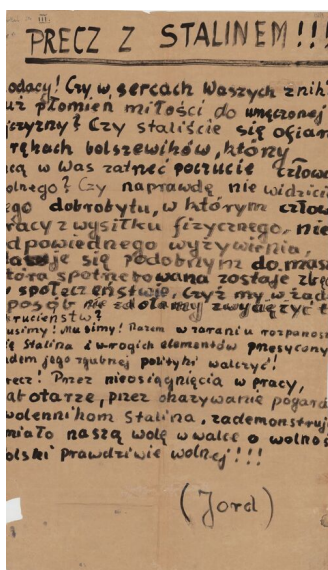 III.
PRECZ Z STALINEM!!!
odacy! Czy w sercach Waszych znik
uż płomień miłości do umęczonej
jczyzny? Czy staliście się ofiar
rękach bolszewików, który
cą w Was zatrzeć poczucie człowi
olnego? Czy naprawdę nie widzicie
ego dobrobytu, w którym człow
racy z wysiłku fizycznego, nie
dpowiedniego wyżywienia,
staje się podobnym do masz
tóra spotrzebowana zostaje zbęd
społeczeństwie, czyż my w żad
posób nie zdołamy zwyciężyć t
krucieństw?
usimy! Musimy! Razem w zaraniu rozpanosz
ię Stalina i wrogich elementów przesyconyc
adem jego zgubnej polityki walczyć!
recz! Przez nieosiągnięcia w pracy,
abotarze, przez okazywanie pogard
wolennikom Stalina, zademonstruj
miało naszą wolę w walce o wolnoś
olski prawdziwie wolnej!!!
(Jord)